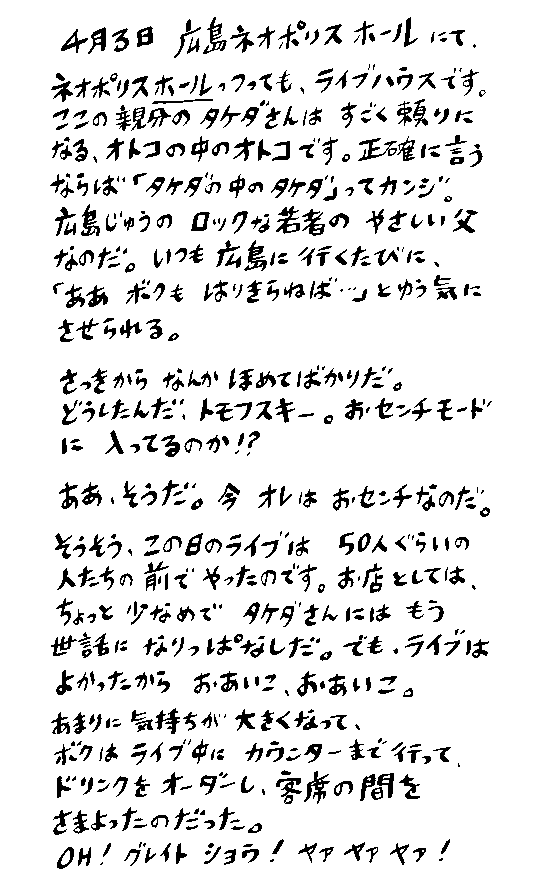 4月3日 広島ネオポリスホールにて、
ネオポリスホールっつっても、ライブハウスです。
ここの親分のタケダさんは すごく頼りに
なる、オトコの中のオトコです。正確に言う
ならば「タケダの中のタケダ」ってカンジ。
広島じゅうの ロックな若者の やさしい父
なのだ。いつも 広島に 行くたびに、
「ああ ボクも はりきらねば…」とゆう気に
させられる。
さっきから なんか ほめてばかりだ。
どうしたんだ、トモフスキー。おセンチモード
に 入ってるのか!?
ああ、そうだ。今 オレは おセンチなのだ。
そうそう、この日のライブは 50人ぐらいの
人たちの 前で やったのです。お店としては、
ちょっと 少なめで タケダさんには もう
世話に なりっぱなしだ。でも、ライブは
よかったから おあいこ、おあいこ。
あまりに 気持ちが 大きくなって、
ボクは ライブ中に カウンターまで 行って、
ドリンクを オーダーし、客席の間を
さまよったのだった。
OH! グレイト ショウ! ヤァ ヤァ ヤァ!